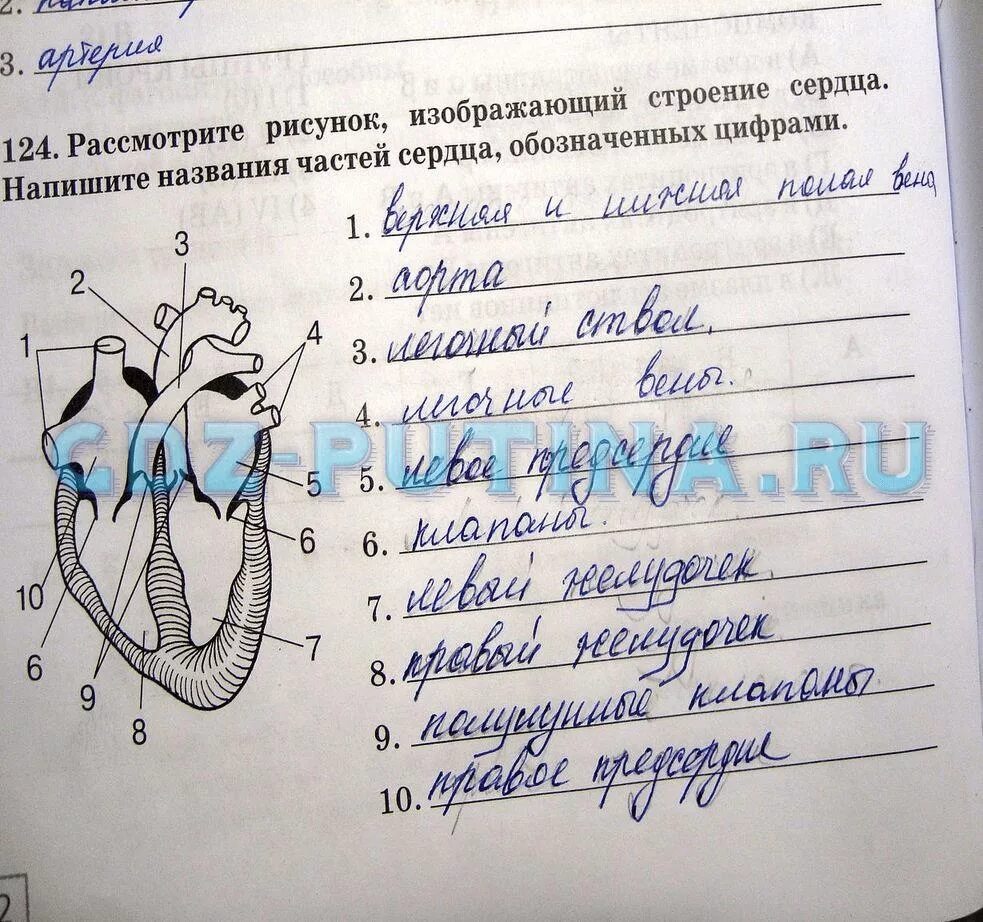 2.
3. артерия
124. Рассмотрите рисунок, изображающий строение сердца.
Напишите названия частей сердца, обозначенных цифрами.
1. верхная и нижная полая вена
2. аорта
3. легочный ствол.
4. легочные вены.
5. левое предсердие
6. клапаны.
7. левый желудочек
8. правый желудочек
9. полулунные клапаны.
10. правое предсердие
3
2
1
4
5
6
10
7
6
9
8
GDZ-PUTINA.RU
2